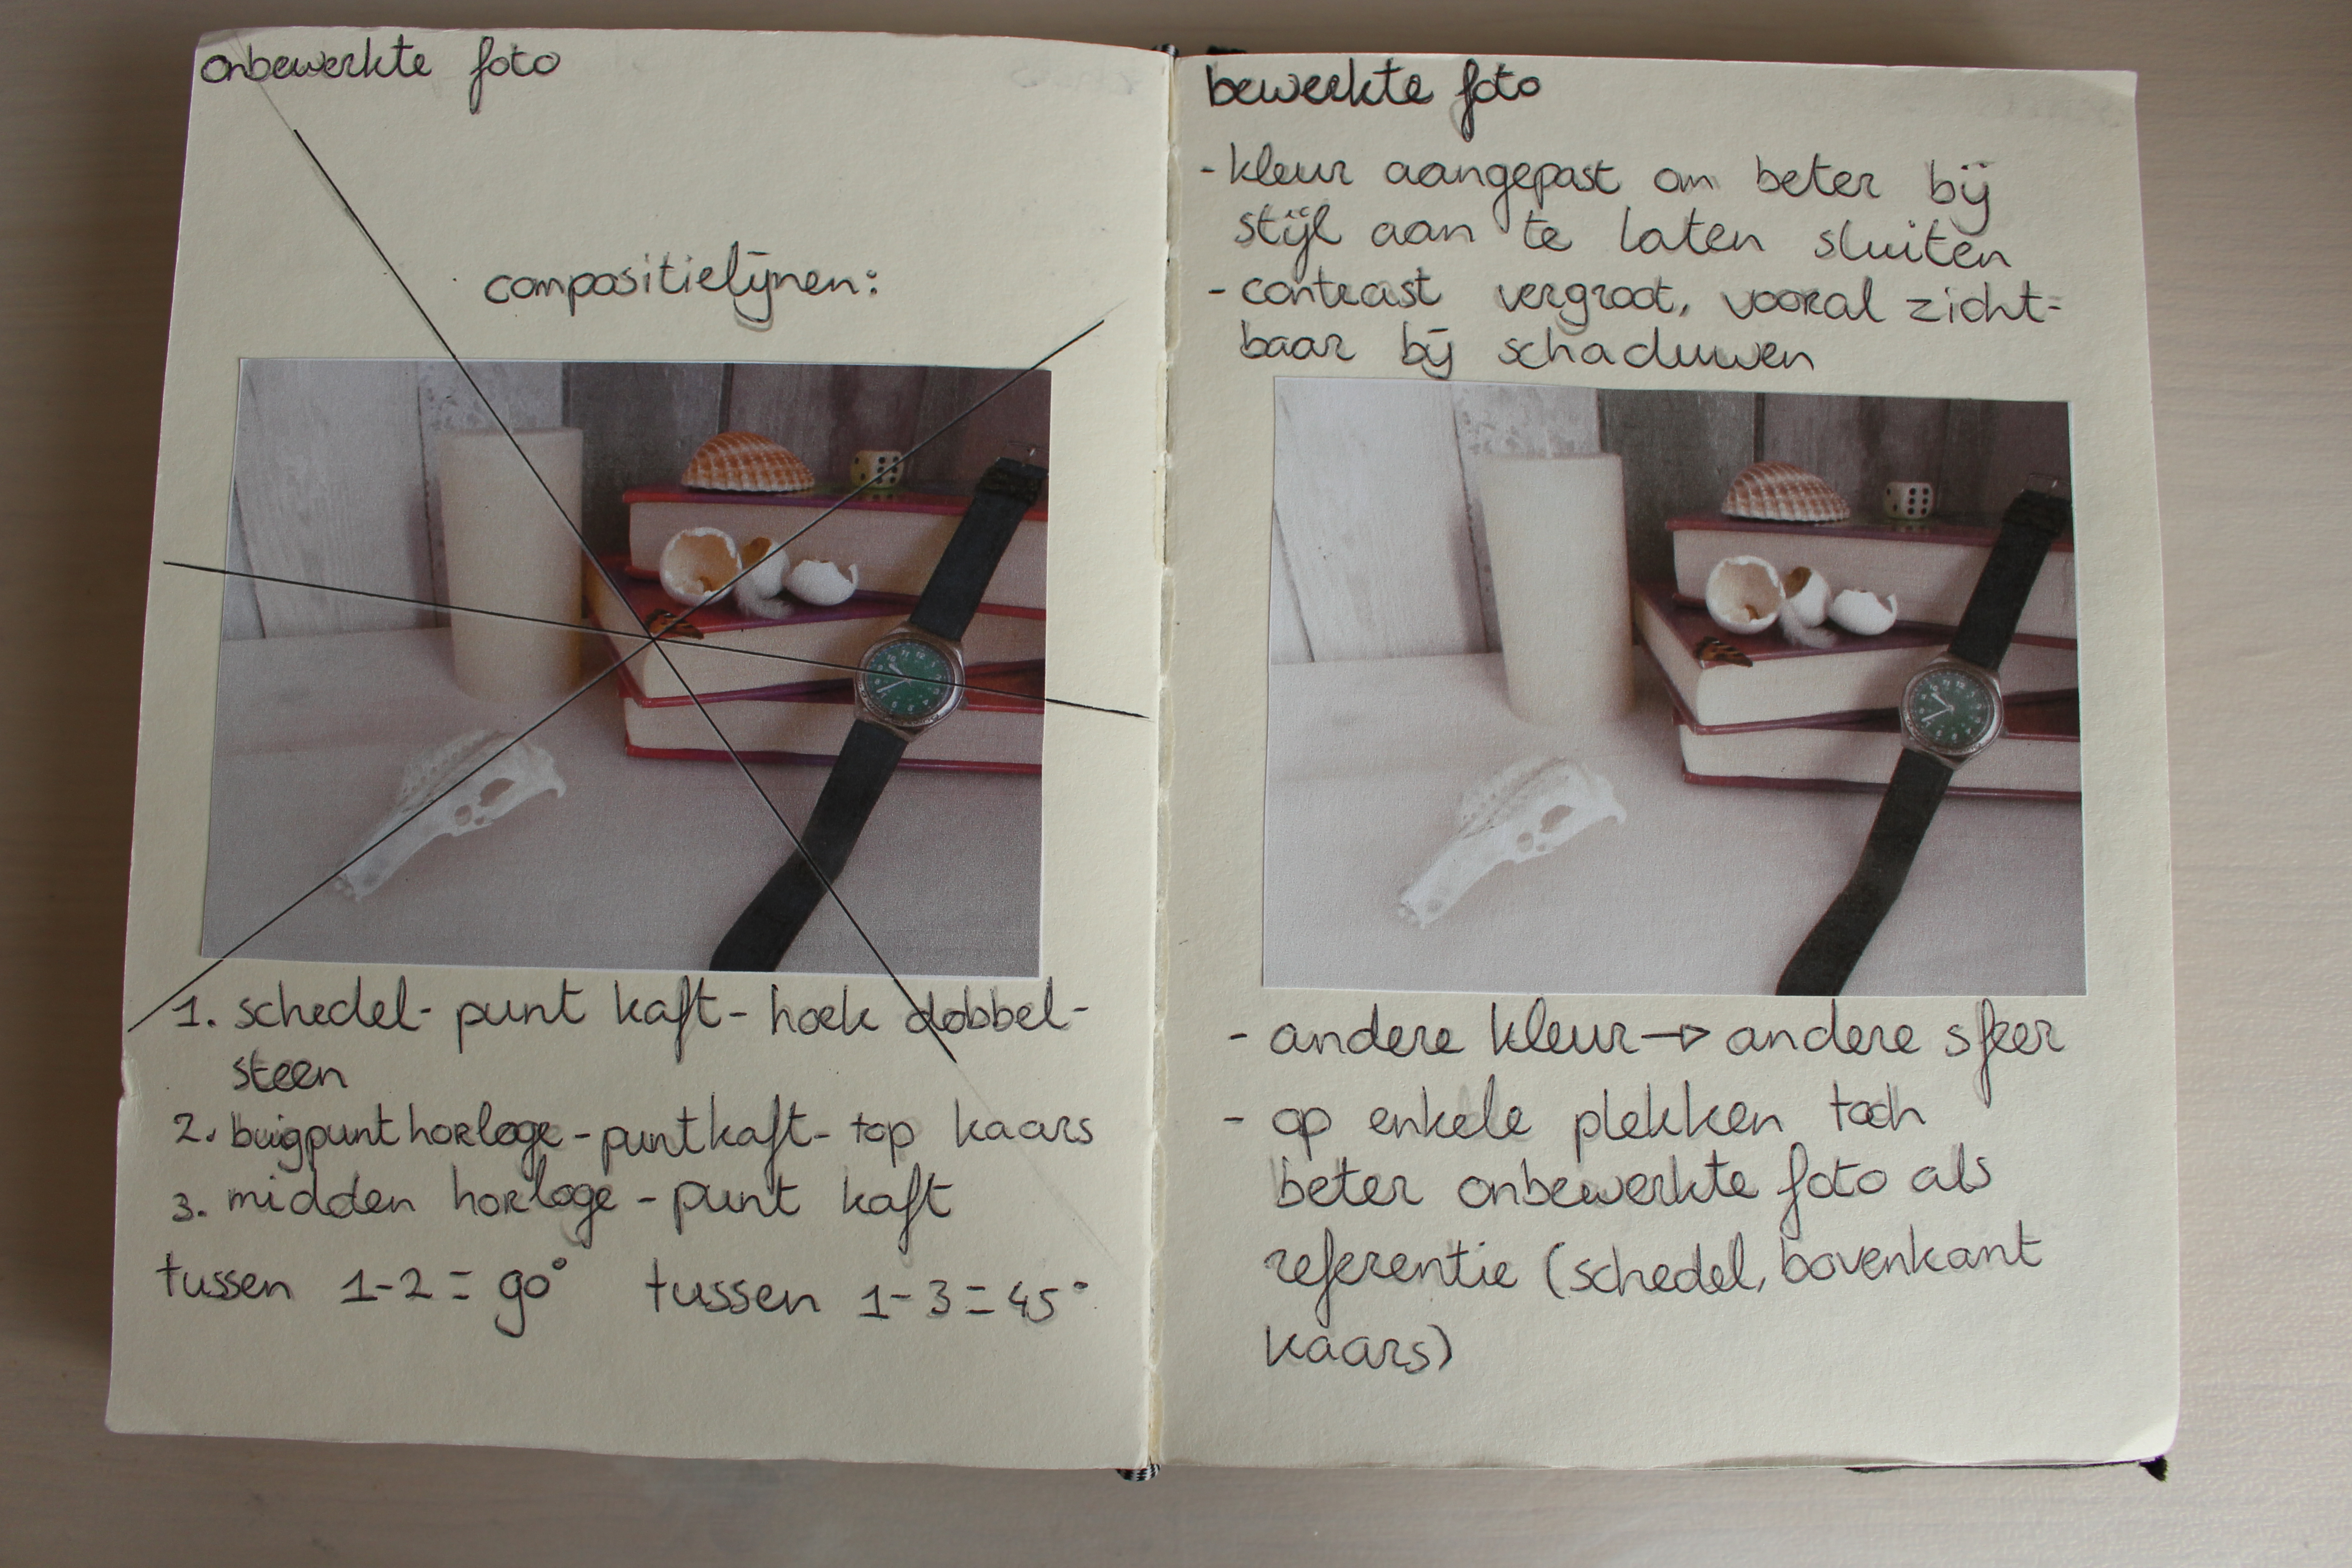 onbewerkte foto
compositielijnen:
1. schedel- punt kaft- hoek dobbel-
steen
2. buigpunt horloge - punt kaft- top kaars
3. midden horloge - punt kaft
tussen 1-2 = 90° tussen 1-3 = 45°
bewerkte foto
- kleur aangepast om beter bij
stijl aan te laten sluiten
- contrast vergroot, vooral zicht-
baar bij schaduwen
- andere kleur → andere sfeer
- op enkele plekken toch
beter onbewerkte foto als
referentie (schedel, bovenkant
kaars)